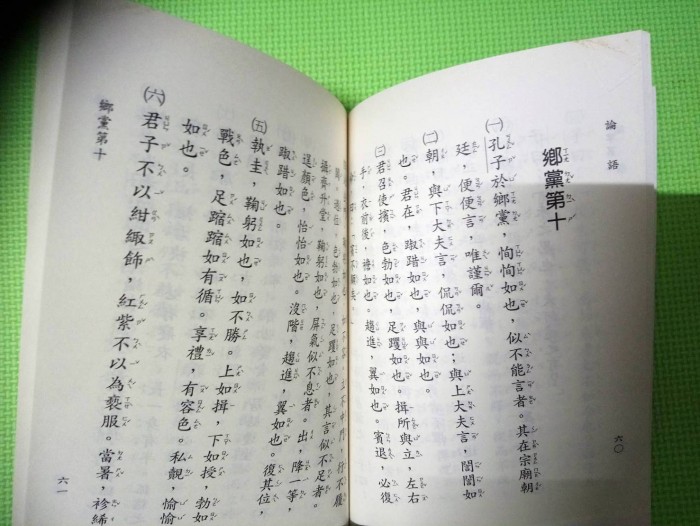 論語
六〇
鄉黨第十
㈠孔子於鄉黨，恂恂如也，似不能言者。其在宗廟朝
廷，便便言，唯謹爾。
㈡朝，與下大夫言，侃侃如也；與上大夫言，誾誾如
也。君在，踧踖如也，與與如也。
㈢君召使擯，色勃如也，足躩如也。揖所與立，左右
手，衣前後，襜如也。趨進，翼如也。賓退，必復
立不中門，行不履
色勃如也，足躩如也，其言似不足者。
攝齊升堂，鞠躬如也，屏氣似不息者。出，降一等，
逞顏色，怡怡如也。沒階，趨進，翼如也。復其位，
踧踖如也。
㈤執圭，鞠躬如也，如不勝。上如揖，下如授，勃如
戰色，足蹜蹜如有循。享禮，有容色。私覿，愉愉
如也。
㈥君子不以紺緅飾，紅紫不以為褻服。當暑，袗絺
鄉黨第十
六一